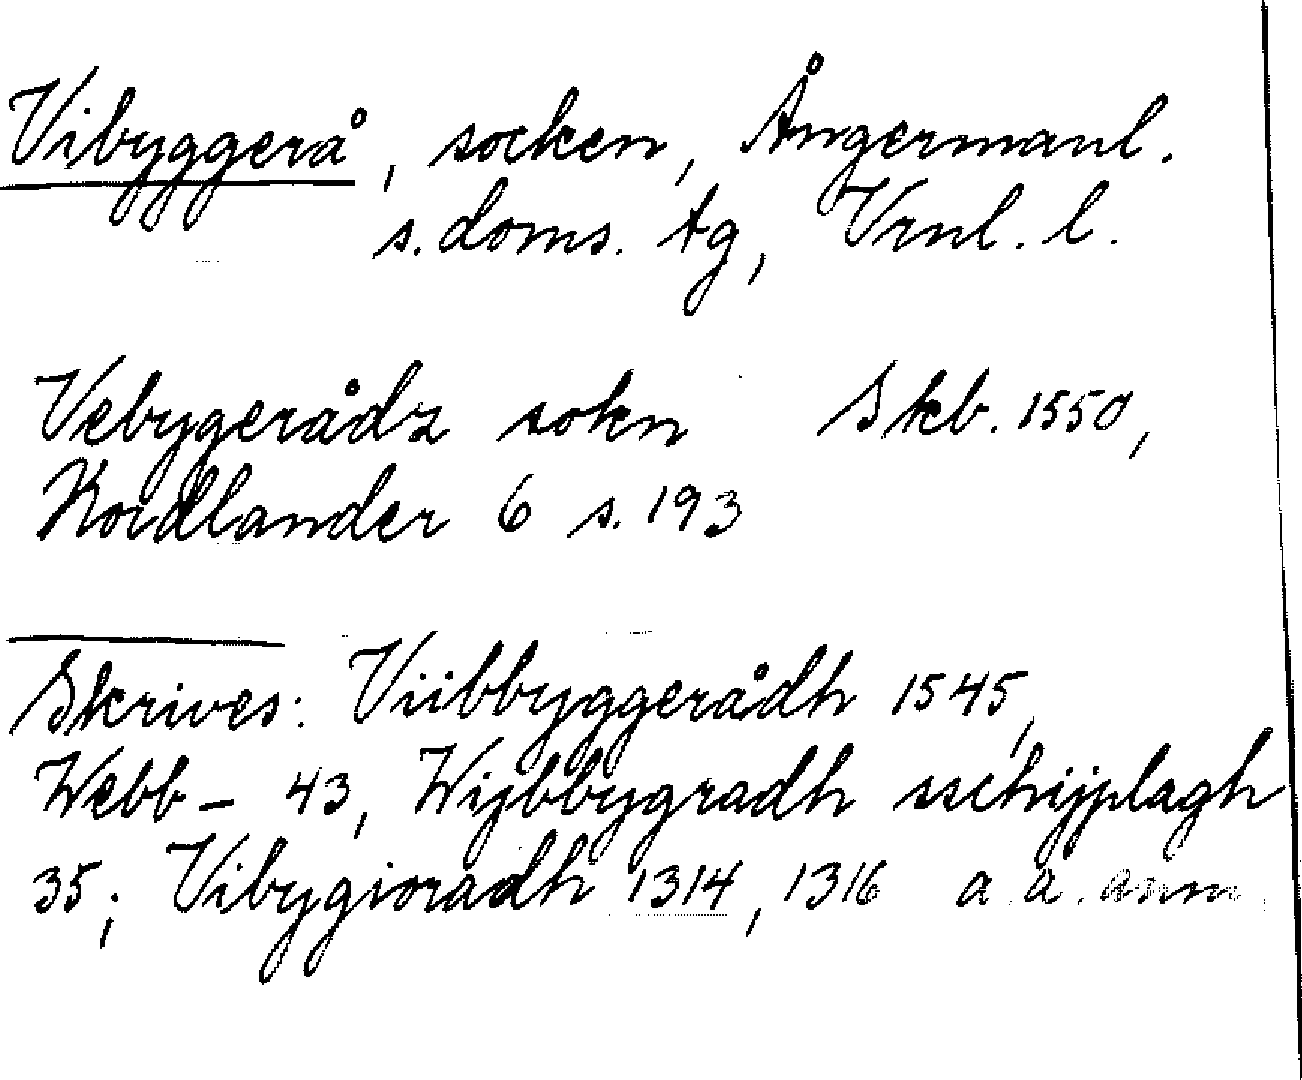 Vibyggerå, socken, Ångermanl.
s. doms. tg, Vrnl. l.
Vebygerådz sokn Skb. 1550,
Nordlander 6 s. 193
Skrives: Viibbyggerådh 1545,
Webb- 43, Wijbbygradh sschijplagh
35; Vibygioradh 1314, 1316 a. a. anm.